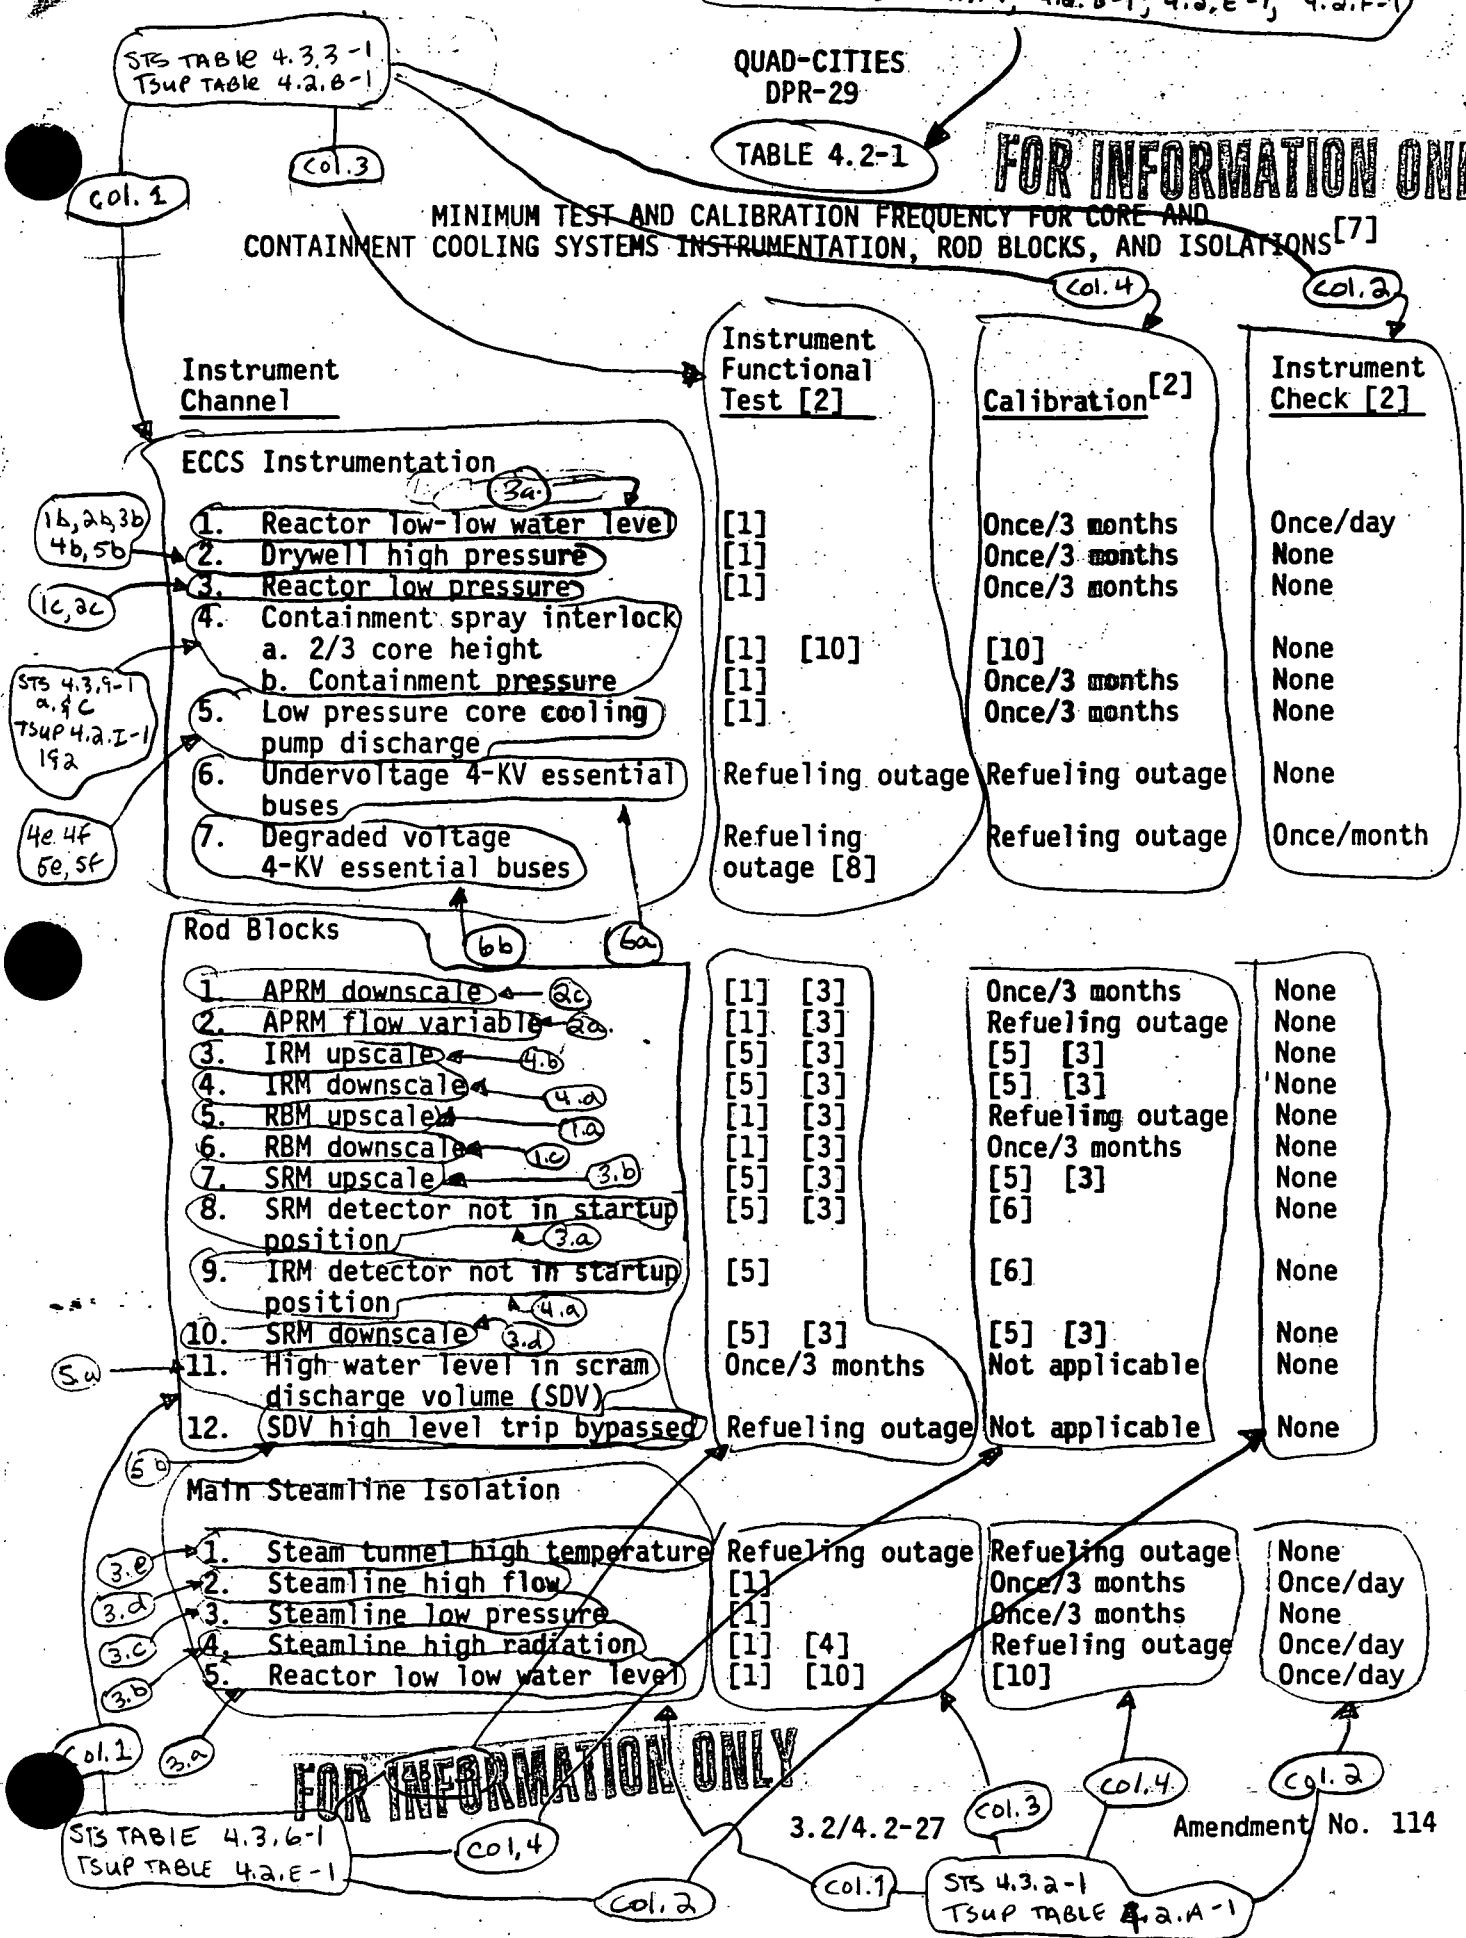 4.2.B-1, 4.2.E-1, 4.2.F-1
STS TABLE 4.3.3-1
TSUP TABLE 4.2.B-1
QUAD-CITIES
DPR-29
TABLE 4.2-1
FOR INFORMATION ONL
Col. 1
Col. 3
MINIMUM TEST AND CALIBRATION FREQUENCY FOR CORE AND
CONTAINMENT COOLING SYSTEMS INSTRUMENTATION, ROD BLOCKS, AND ISOLATIONS[7]
Col. 4
Col. 2
Instrument Channel
Instrument Functional Test [2]
Calibration[2]
Instrument Check [2]
ECCS Instrumentation
3a.
1b, 2b, 3b
4b, 5b
1. Reactor low-low water level [1] Once/3 months Once/day
2. Drywell high pressure [1] Once/3 months None
1c, 2c
3. Reactor low pressure [1] Once/3 months None
4. Containment spray interlock
a. 2/3 core height [1] [10] [10] None
b. Containment pressure [1] Once/3 months None
STS 4.3.9-1
a. & c
TSUP 4.2.I-1
1&2
5. Low pressure core cooling [1] Once/3 months None
pump discharge
6. Undervoltage 4-KV essential Refueling outage Refueling outage None
buses
4e 4f
5e, 5f
7. Degraded voltage Refueling Refueling outage Once/month
4-KV essential buses outage [8]
6b
6a
Rod Blocks
1. APRM downscale 2c [1] [3] Once/3 months None
2. APRM flow variable 2a. [1] [3] Refueling outage None
3. IRM upscale 4.b [5] [3] [5] [3] None
4. IRM downscale 4.d [5] [3] [5] [3] None
5. RBM upscale 1.a [1] [3] Refueling outage None
6. RBM downscale 1.c [1] [3] Once/3 months None
7. SRM upscale 3.b [5] [3] [5] [3] None
8. SRM detector not in startup [5] [3] [6] None
position 3.a
9. IRM detector not in startup [5] [6] None
position 4.a
10. SRM downscale 3.d [5] [3] [5] [3] None
5.a
11. High water level in scram Once/3 months Not applicable None
discharge volume (SDV)
12. SDV high level trip bypassed Refueling outage Not applicable None
5b
Main Steamline Isolation
3.e 1. Steam tunnel high temperature Refueling outage Refueling outage None
3.d 2. Steamline high flow [1] Once/3 months Once/day
3.c 3. Steamline low pressure [1] Once/3 months None
3.b 4. Steamline high radiation [1] [4] Refueling outage Once/day
3.a 5. Reactor low low water level [1] [10] [10] Once/day
Col. 1
FOR INFORMATION ONLY
STS TABLE 4.3.6-1
TSUP TABLE 4.2.E-1
Col. 4
Col. 2
3.2/4.2-27
Col. 3
Col. 4
Col. 2
Amendment No. 114
Col. 1
STS 4.3.2-1
TSUP TABLE 4.2.A-1